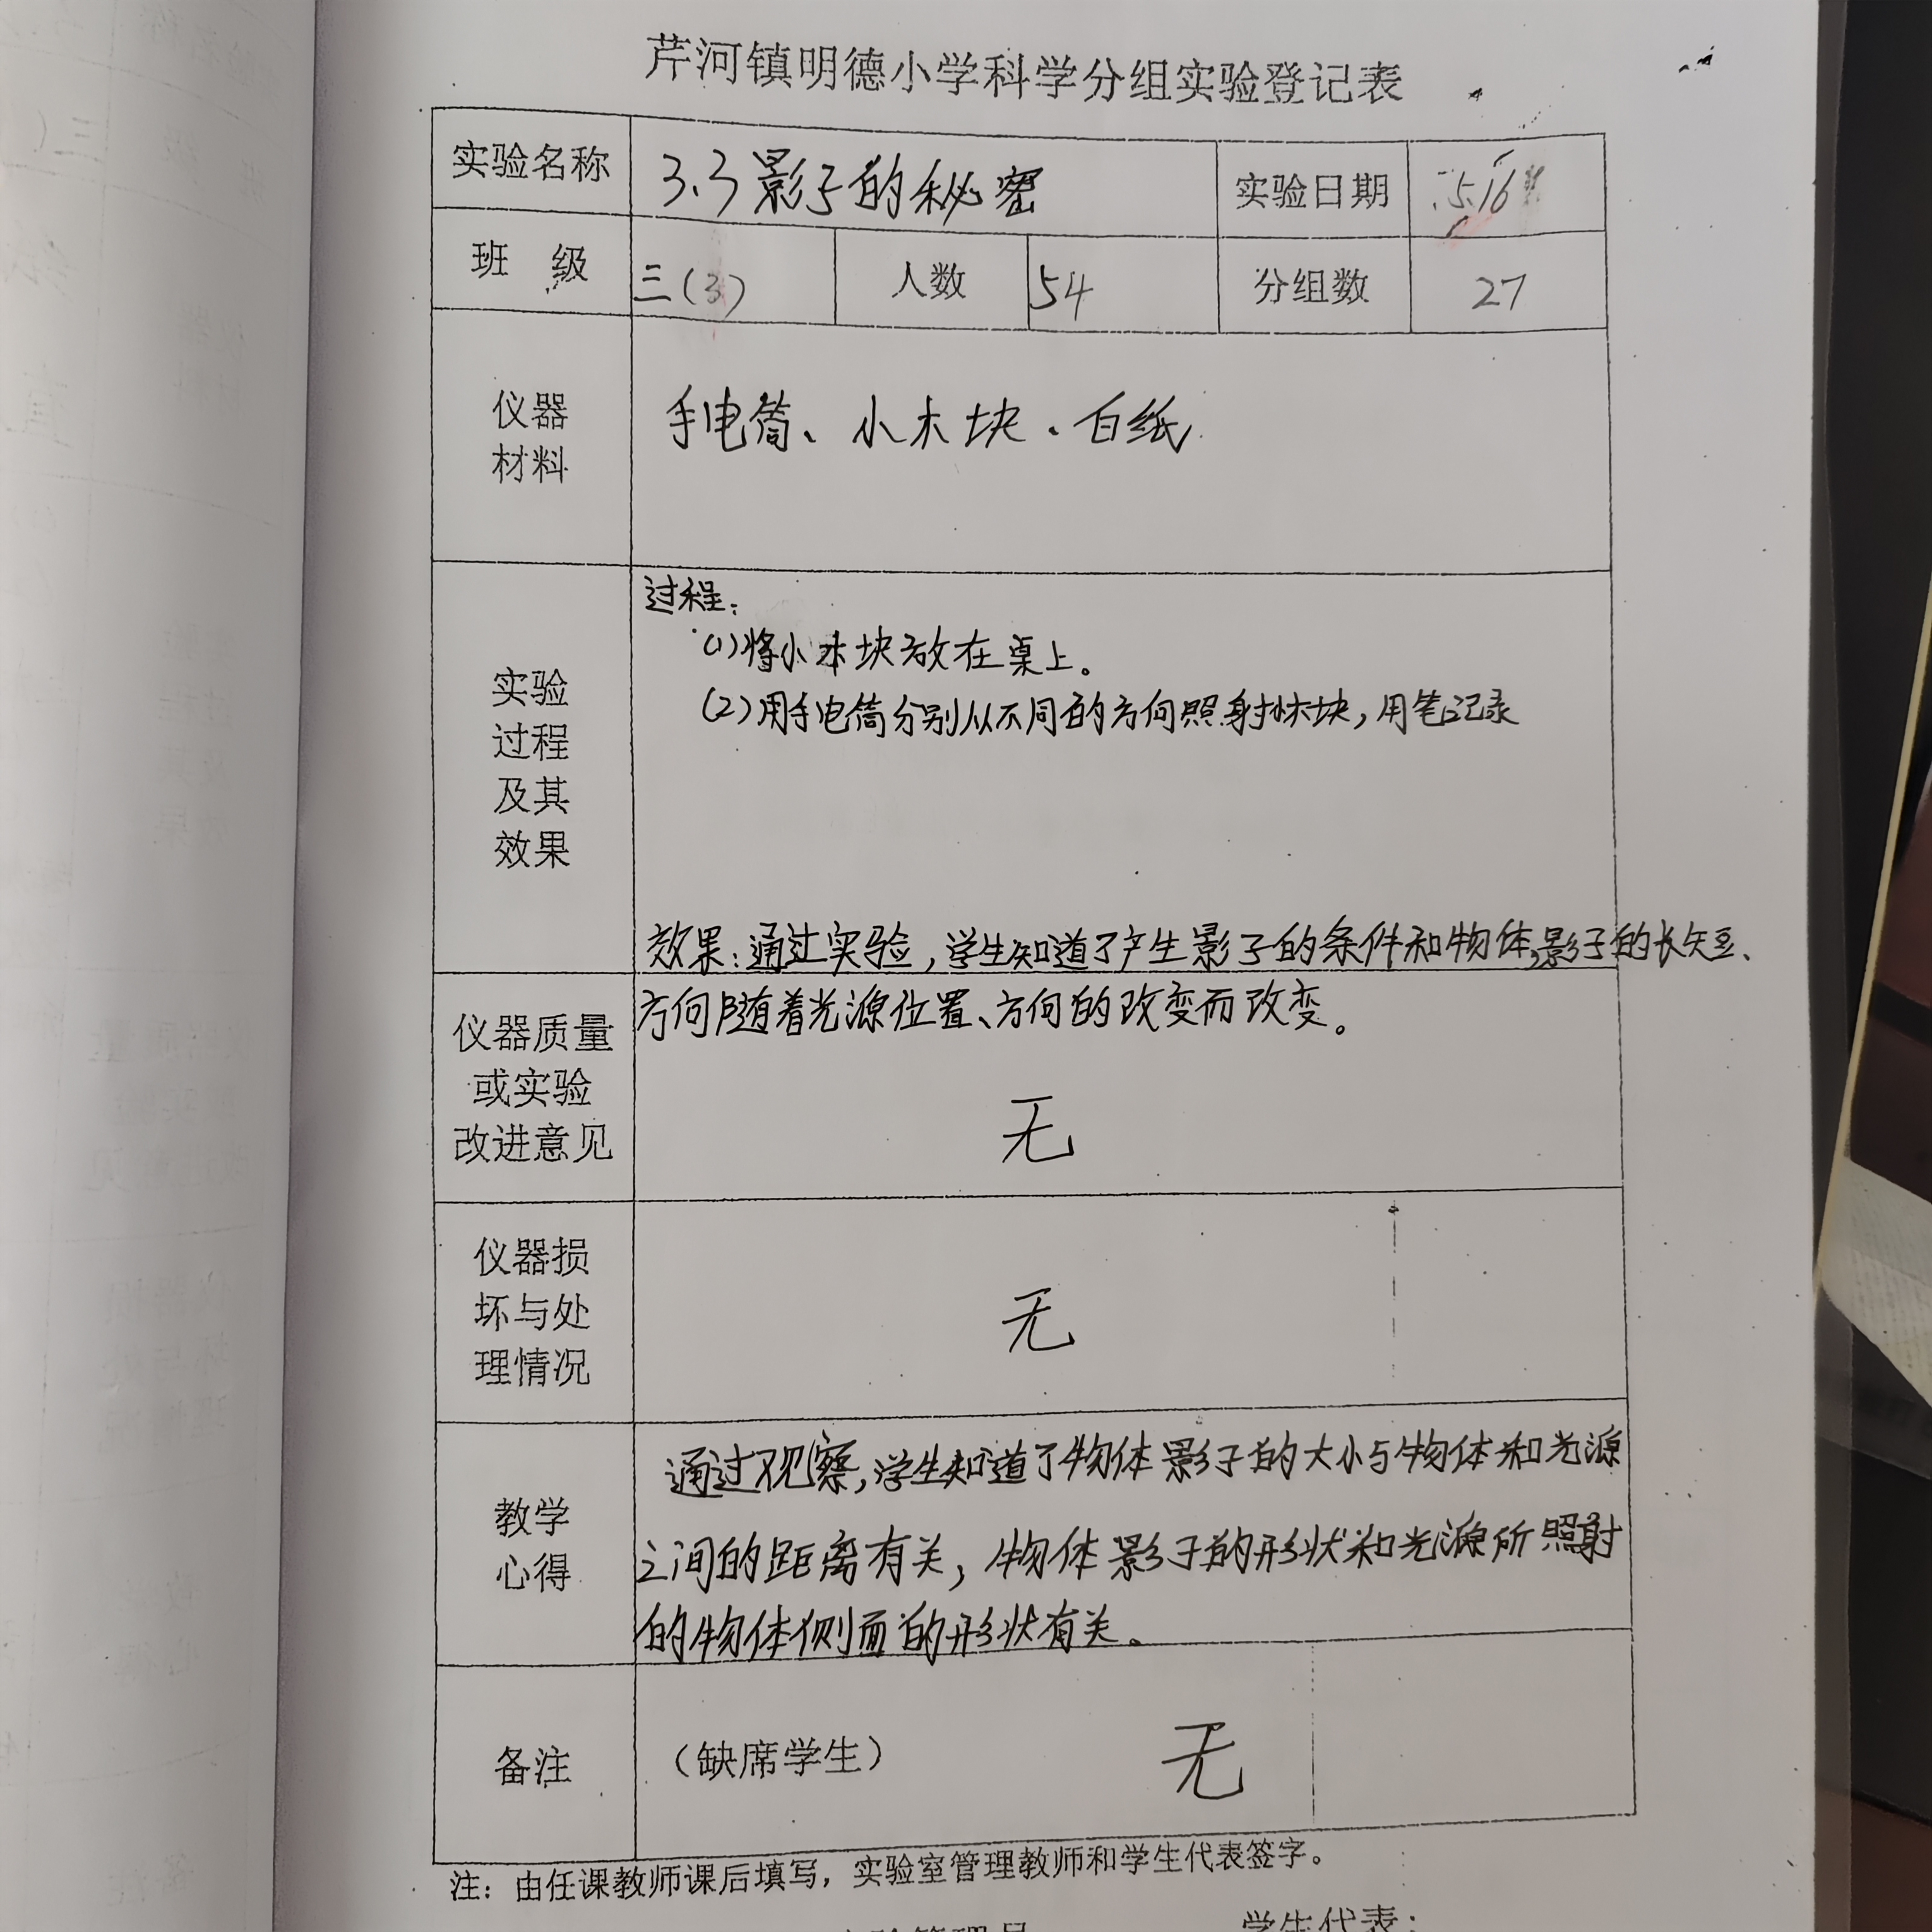 芹河镇明德小学科学分组实验登记表
实验名称 3.3影子的秘密 实验日期 5.16
班 级 三(3) 人数 54 分组数 27
仪器
材料
手电筒、小木块、白纸
实验
过程
及其
效果
过程:
(1)将小木块放在桌上。
(2)用手电筒分别从不同的方向照射木块,用笔记录
效果:通过实验,学生知道了产生影子的条件和物体影子的长短、
方向随着光源位置、方向的改变而改变。
仪器质量
或实验
改进意见
无
仪器损
坏与处
理情况
无
教学
心得
通过观察,学生知道了物体影子的大小与物体和光源
之间的距离有关,物体影子的形状和光源所照射
的物体侧面的形状有关。
备注 (缺席学生) 无
注:由任课教师课后填写,实验室管理教师和学生代表签字。
学生代表: